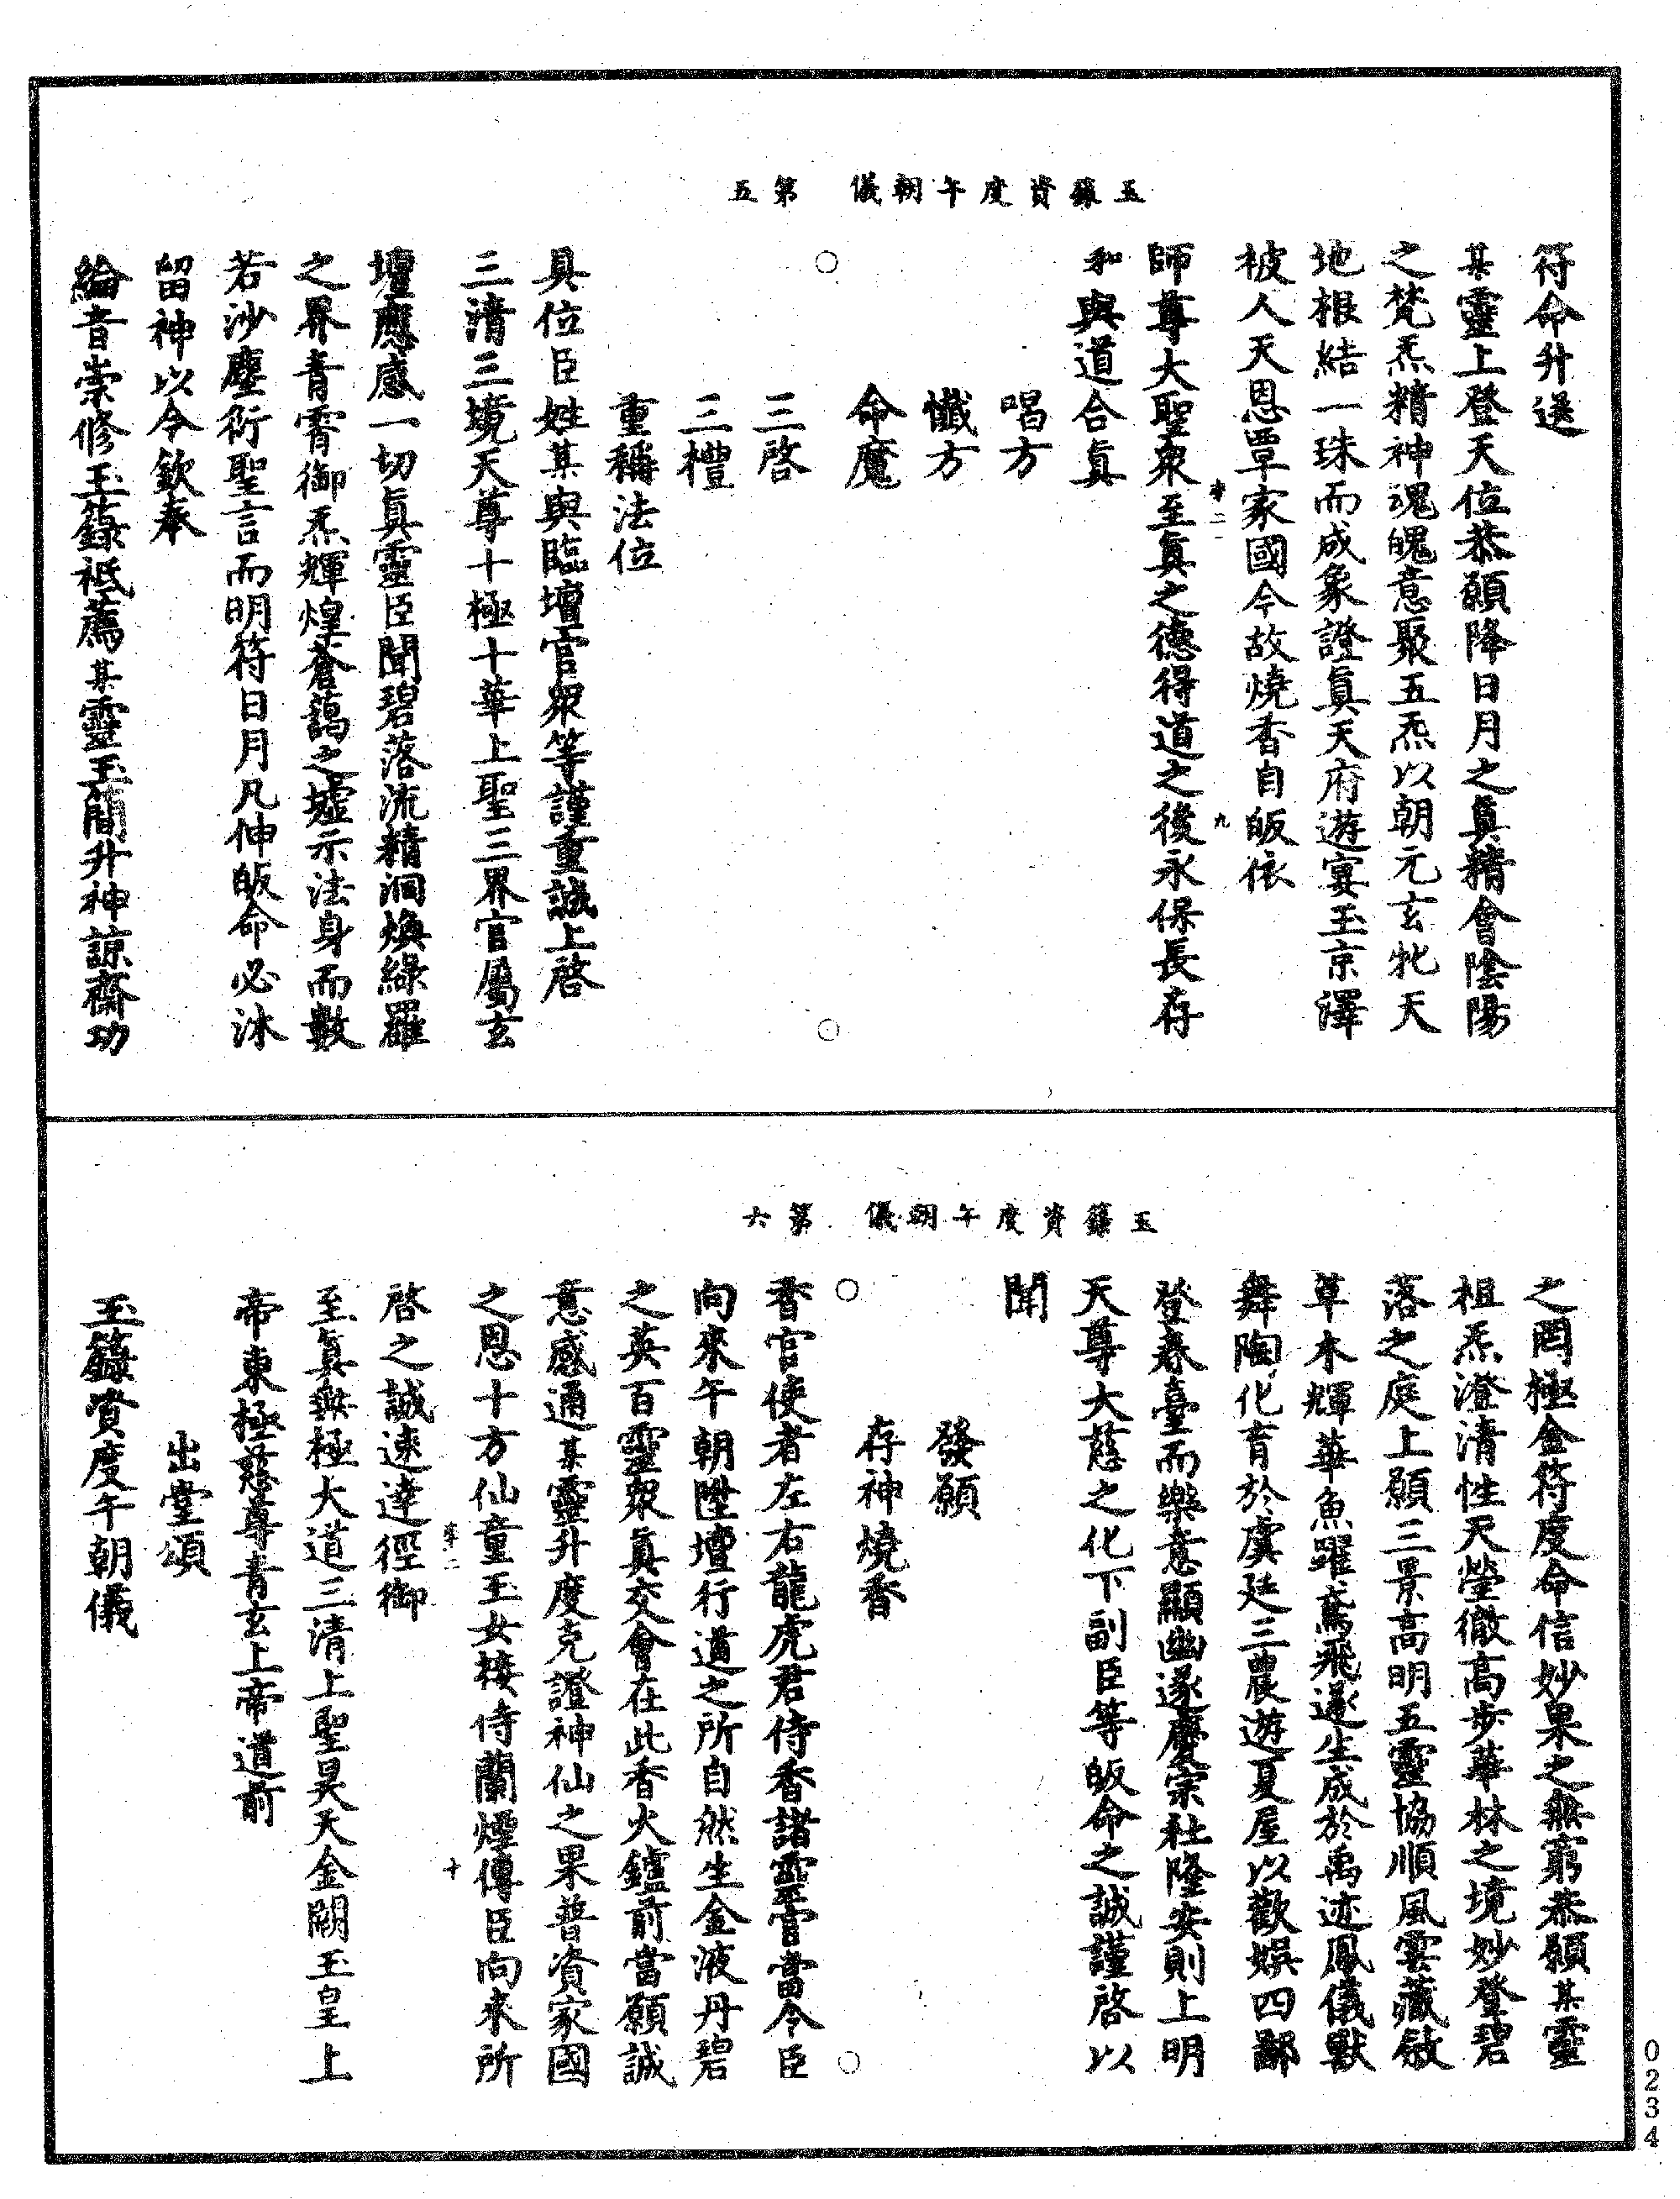 玉籙資度午朝儀　第五
符命升遷
某靈上登天位恭願降日月之眞精會陰陽
之梵炁精神魂魄意聚五炁以朝元玄牝天
地根結一珠而成象證眞天府遊宴玉京澤
被人天恩覃家國今故燒香自皈依
師尊大聖衆至眞之德得道之後永保長存
和與道合眞
唱方
懺方
命魔
三啓
三禮
重稱法位
具位臣姓某與臨壇官衆等謹重誠上啓
三清三境天尊十極十華上聖三界官屬玄
壇應感一切眞靈臣聞碧落流精洞煥綠羅
之界青霄御炁輝煌蒼藹之墟示法身而數
若沙塵衍聖言而明符日月凡伸皈命必沐
留神以今欽奉
綸音崇修玉籙祗薦某靈玉簡升神諒齋功
玉籙資度午朝儀　第六
之罔極金符度命信妙果之無窮恭願某靈
祖炁澄清性天瑩徹高步華林之境妙登碧
落之庭上願三景高明五靈協順風雲藏斂
草木輝華魚躍鳶飛遂生成於禹迹鳳儀獸
舞陶化育於虞廷三農遊夏屋以歡娛四鄙
登春臺而樂意顯幽遂慶宗社隆安則上明
天尊大慈之化下副臣等皈命之誠謹啓以
聞
發願
存神燒香
香官使者左右龍虎君侍香諸靈官當令臣
向來午朝陞壇行道之所自然生金液丹碧
之英百靈衆眞交會在此香火鑪前當願誠
意感通某靈升度克證神仙之果普資家國
之恩十方仙童玉女接侍蘭煙傳臣向來所
啓之誠速達徑御
至眞無極大道三清上聖昊天金闕玉皇上
帝東極慈尊青玄上帝道前
出堂頌
玉籙資度午朝儀
0234